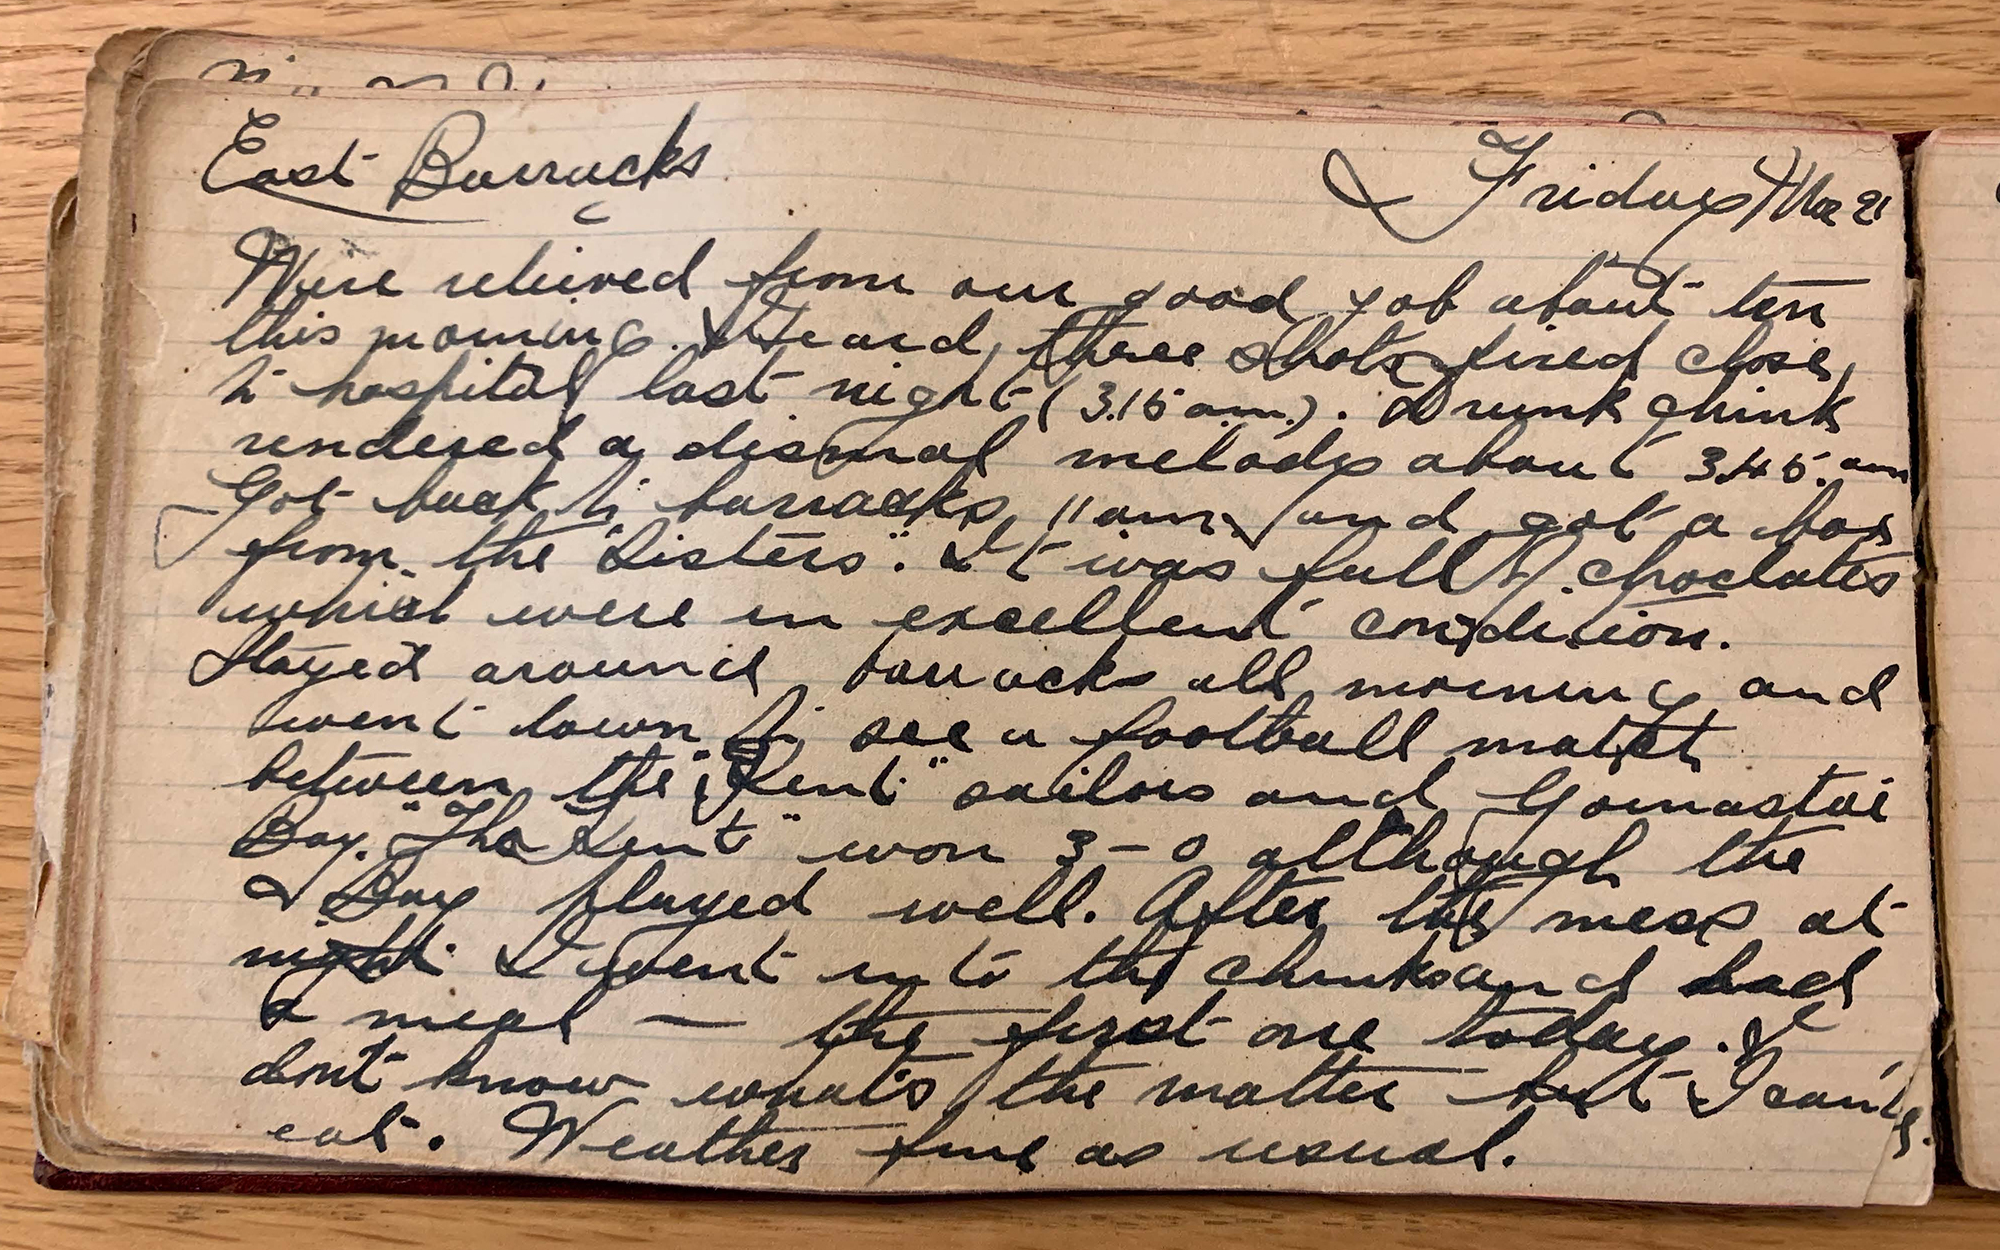 East Barracks
Friday Mar 21
Were relieved from our good job about ten
this morning. Heard three shots fired close
to hospital last night (3.15 am.). Drunk chink
rendered a dismal melody about 3.45. am
Got back to barracks 11 am, and got a box
from the "Sisters". It was full of choclates
which were in excellent condition.
Stayed around barracks all morning and
went down to see a football match
between the "Kent" sailors and Gornastai
Bay. "The Kent" won 3-0 although the
Bay played well. After the mess at
night I went into the chinks and had
a meal — the first one today. I
dont know what's the matter but I can't
eat. Weather fine as usual.